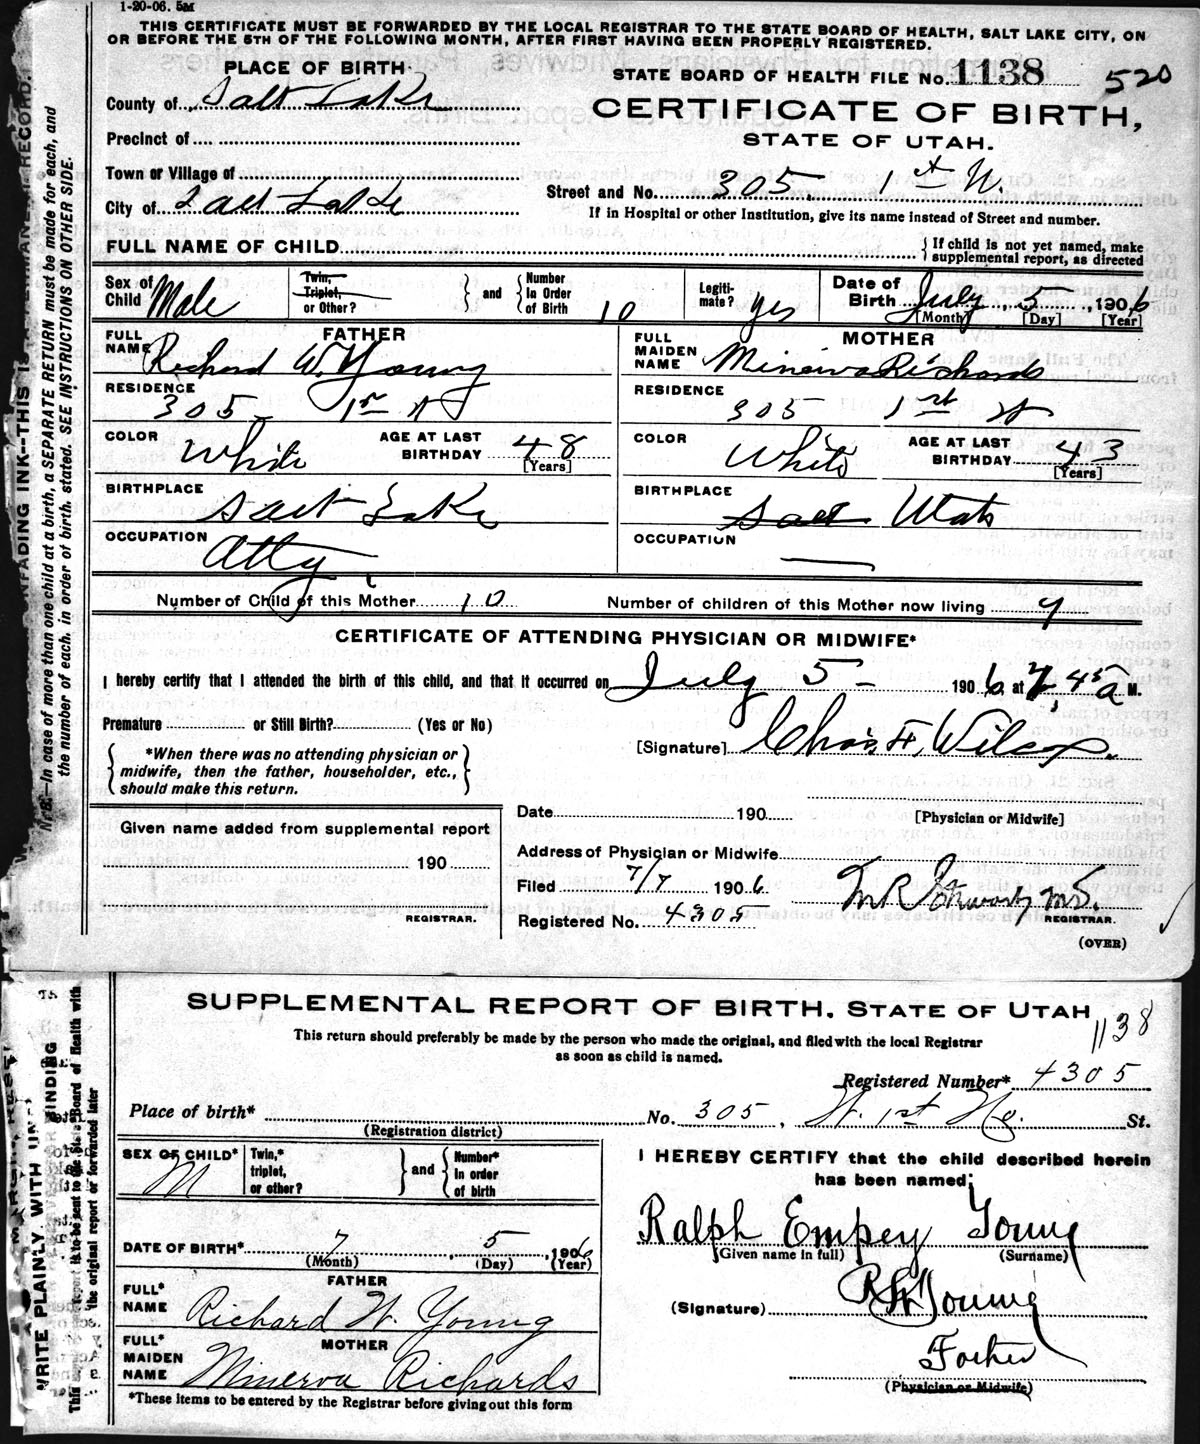 1-20-06. 5M
THIS CERTIFICATE MUST BE FORWARDED BY THE LOCAL REGISTRAR TO THE STATE BOARD OF HEALTH, SALT LAKE CITY, ON
OR BEFORE THE 5TH OF THE FOLLOWING MONTH, AFTER FIRST HAVING BEEN PROPERLY REGISTERED.
PLACE OF BIRTH
STATE BOARD OF HEALTH FILE No. 1138 520
County of Salt Lake
CERTIFICATE OF BIRTH,
Precinct of
STATE OF UTAH.
Town or Village of
Street and No. 305, 1st N.
City of Salt Lake
If in Hospital or other Institution, give its name instead of Street and number.
FULL NAME OF CHILD
{ If child is not yet named, make
supplemental report, as directed
Sex of Child Male
Twin, Triplet, or Other? } and { Number In Order of Birth 10
Legiti-mate? Yes
Date of Birth July 5, 1906
[Month] [Day] [Year]
FATHER
FULL NAME Richard W. Young
MOTHER
FULL MAIDEN NAME Minerva Richards
RESIDENCE 305 1st N
RESIDENCE 305 1st N
COLOR White AGE AT LAST BIRTHDAY 48 [Years]
COLOR White AGE AT LAST BIRTHDAY 43 [Years]
BIRTHPLACE Salt Lake
BIRTHPLACE Salt Utah
OCCUPATION Atty
OCCUPATION —
Number of Child of this Mother 10
Number of children of this Mother now living 9
CERTIFICATE OF ATTENDING PHYSICIAN OR MIDWIFE*
I hereby certify that I attended the birth of this child, and that it occurred on July 5 1906 at 7,45 a M.
Premature or Still Birth? (Yes or No)
[Signature] Chas. F. Wilcox.
{ *When there was no attending physician or
midwife, then the father, householder, etc.,
should make this return. }
Date 190
[Physician or Midwife]
Given name added from supplemental report
190
REGISTRAR.
Address of Physician or Midwife
Filed 7/7 1906
Registered No. 4305
M.D.
REGISTRAR.
(OVER)
UNFADING INK--THIS IS A PERMANENT RECORD.
N. B.—In case of more than one child at a birth, a SEPARATE RETURN must be made for each, and
the number of each, in order of birth, stated. SEE INSTRUCTIONS ON OTHER SIDE.
SUPPLEMENTAL REPORT OF BIRTH, STATE OF UTAH
1138
This return should preferably be made by the person who made the original, and filed with the local Registrar
as soon as child is named.
Registered Number* 4305
Place of birth* No. 305, W. 1st No. St.
(Registration district)
SEX OF CHILD* M
Twin,* triplet, or other? } and { Number* in order of birth
I HEREBY CERTIFY that the child described herein
has been named:
Ralph Empey Young
(Given name in full) (Surname)
DATE OF BIRTH* 7, 5, 1906
(Month) (Day) (Year)
(Signature) R W Young
FATHER
FULL* NAME Richard W. Young
Father
MOTHER
FULL* MAIDEN NAME Minerva Richards
(Physician or Midwife)
*These items to be entered by the Registrar before giving out this form
WRITE PLAINLY, WITH
the original report or forwarded later